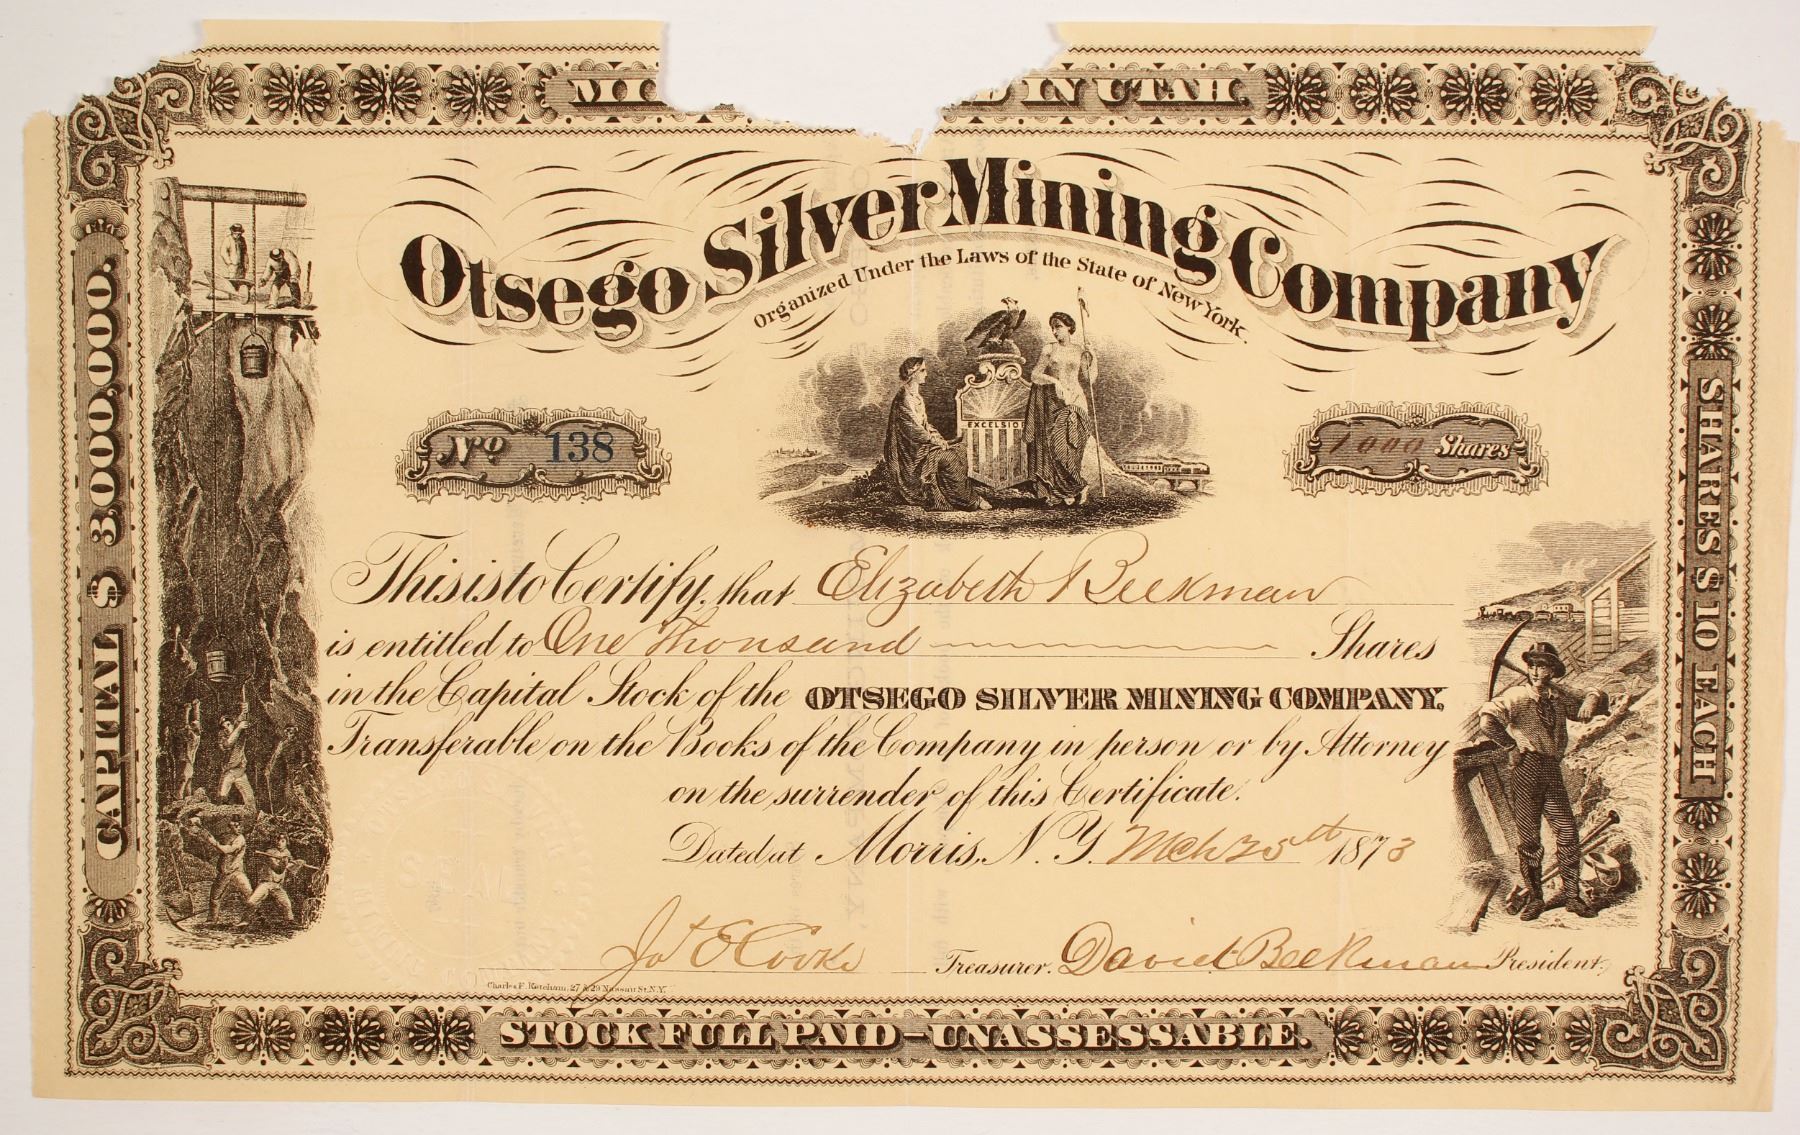 MI D IN UTAH.
CAPITAL $ 3,000,000.
Otsego Silver Mining Company
Organized Under the Laws of the State of New York.
EXCELSIO
No 138
1000 Shares
SHARES $ 10 EACH
This is to Certify, that Elizabeth Beekman
is entitled to One Thousand Shares
in the Capital Stock of the OTSEGO SILVER MINING COMPANY,
Transferable on the Books of the Company in person or by Attorney
on the surrender of this Certificate.
Dated at Morris, N.Y. Mch 25th 1873
SEAL
E Cooke Treasurer. David Beekman President.
Charles F. Ketcham, 27 & 29 Nassau St. N.Y.
STOCK FULL PAID-UNASSESSABLE.